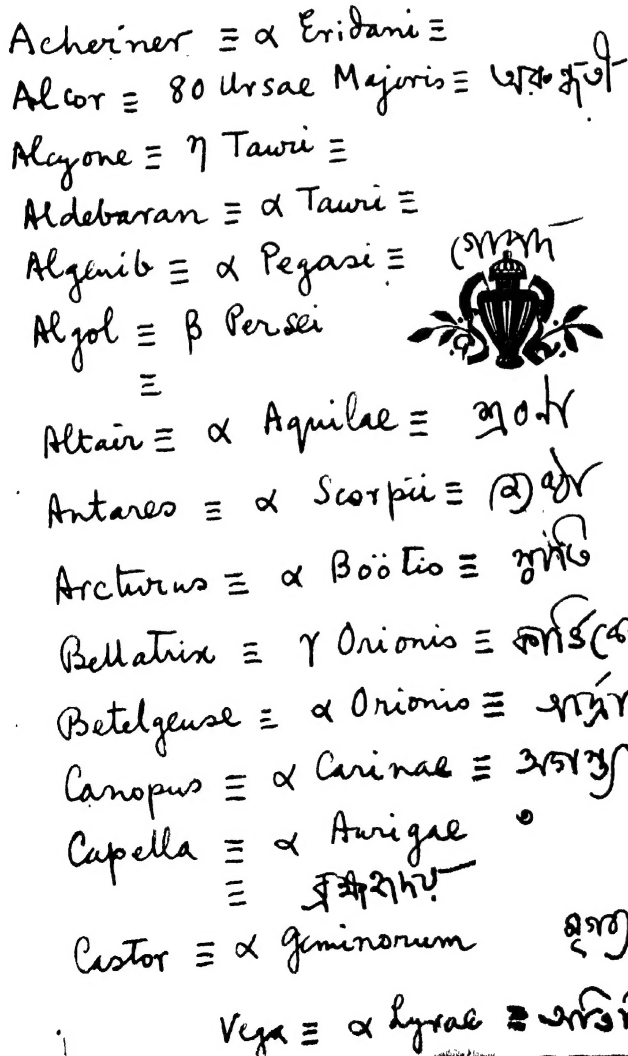 Acheiner ≡ α Eridani ≡
Alcor ≡ 80 Ursae Majoris ≡ অরুন্ধতী
Alcyone ≡ η Tauri ≡
Aldebaran ≡ α Tauri ≡
Algenib ≡ α Pegasi ≡
Algol ≡ β Persei
≡
Altair ≡ α Aquilae ≡ শ্রবণা
Antares ≡ α Scorpii ≡ জ্যেষ্ঠা
Arcturus ≡ α Boötis ≡ স্বাতি
Bellatrix ≡ γ Orionis ≡
Betelgeuse ≡ α Orionis ≡
Canopus ≡ α Carinae ≡ অগস্ত্য
Capella ≡ α Aurigae
≡ ব্রহ্মহৃদয়
Castor ≡ α Geminorum
Vega ≡ α Lyrae ≡